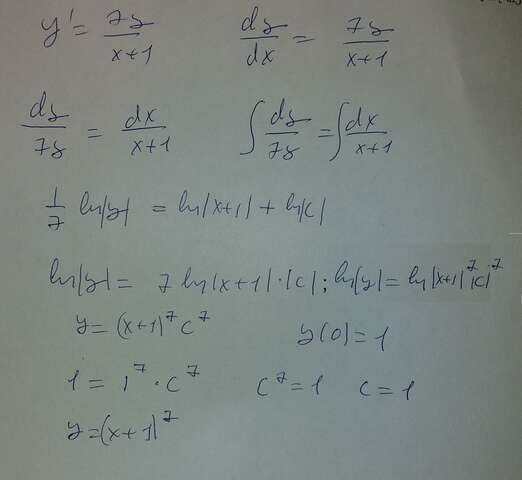 y' = 7y/(x+1)    dy/dx = 7y/(x+1)
dy/7y = dx/(x+1)    ∫ dy/7y = ∫ dx/(x+1)
1/7 ln|y| = ln|x+1| + ln|c|
ln|y| = 7 ln|x+1|·|c| ; ln|y| = ln|x+1|⁷|c|⁷
y = (x+1)⁷c⁷    y(0) = 1
1 = 1⁷·c⁷    c⁷ = 1    c = 1
y = (x+1)⁷